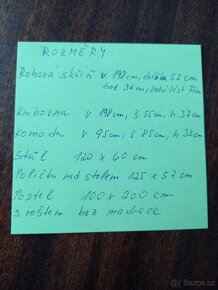 ROZMĚRY
Rohová skříň v. 198cm, dvířka 52 cm
bok 36 cm, zadní část 75cm
Knihovna v. 198cm, š. 55cm, h 37cm
Komoda v. 95cm, š. 85cm, h 37cm
Stůl 120 x 60 cm
Polička nad stolem 125 x 57 cm
Postel 100 x 200 cm
s roštem bez madrace
Bazoš.cz